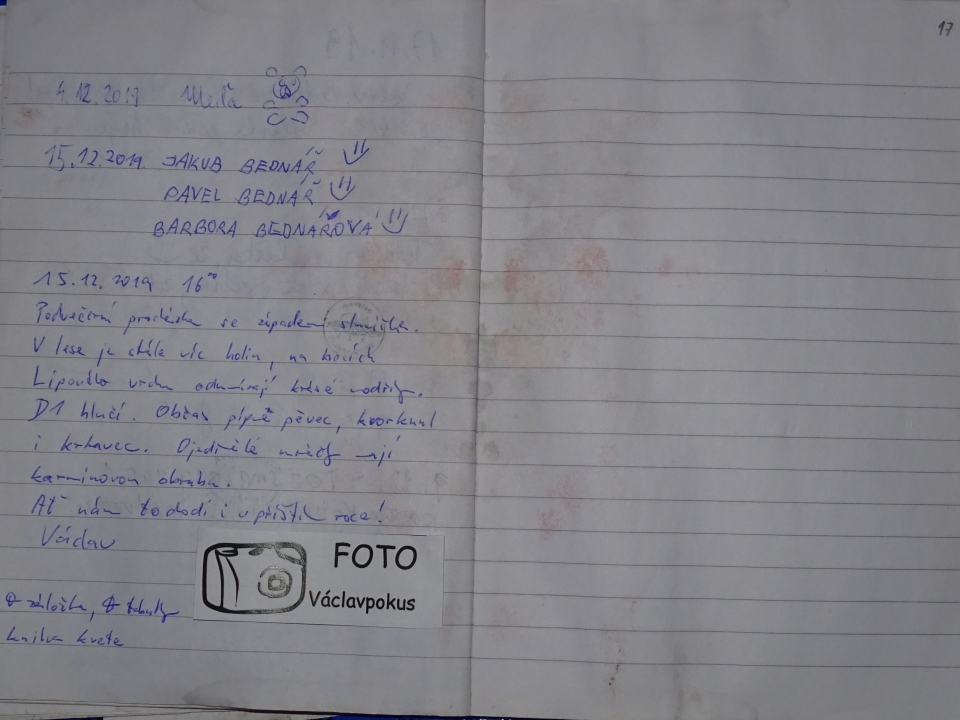 17
4.12.2019
15.12.2019. JAKUB BEDNÁŘ
PAVEL BEDNÁŘ
BARBORA BEDNÁŘOVÁ
15.12.2019 16⁰⁰
Podvečerní procházka se západem sluníčka.
V lese je stále víc holin, na bocích
Lipového vrchu odumírají krásné modříny.
D1 hlučí. Občas pípne pěvec, kvorknul
i krkavec. Ojedinělé mráčky mají
karmínovou obrubu.
Ať nám to chodí i v příštím roce!
Václav
FOTO
Václavpokus
záložka, tabulky
kniha kvete